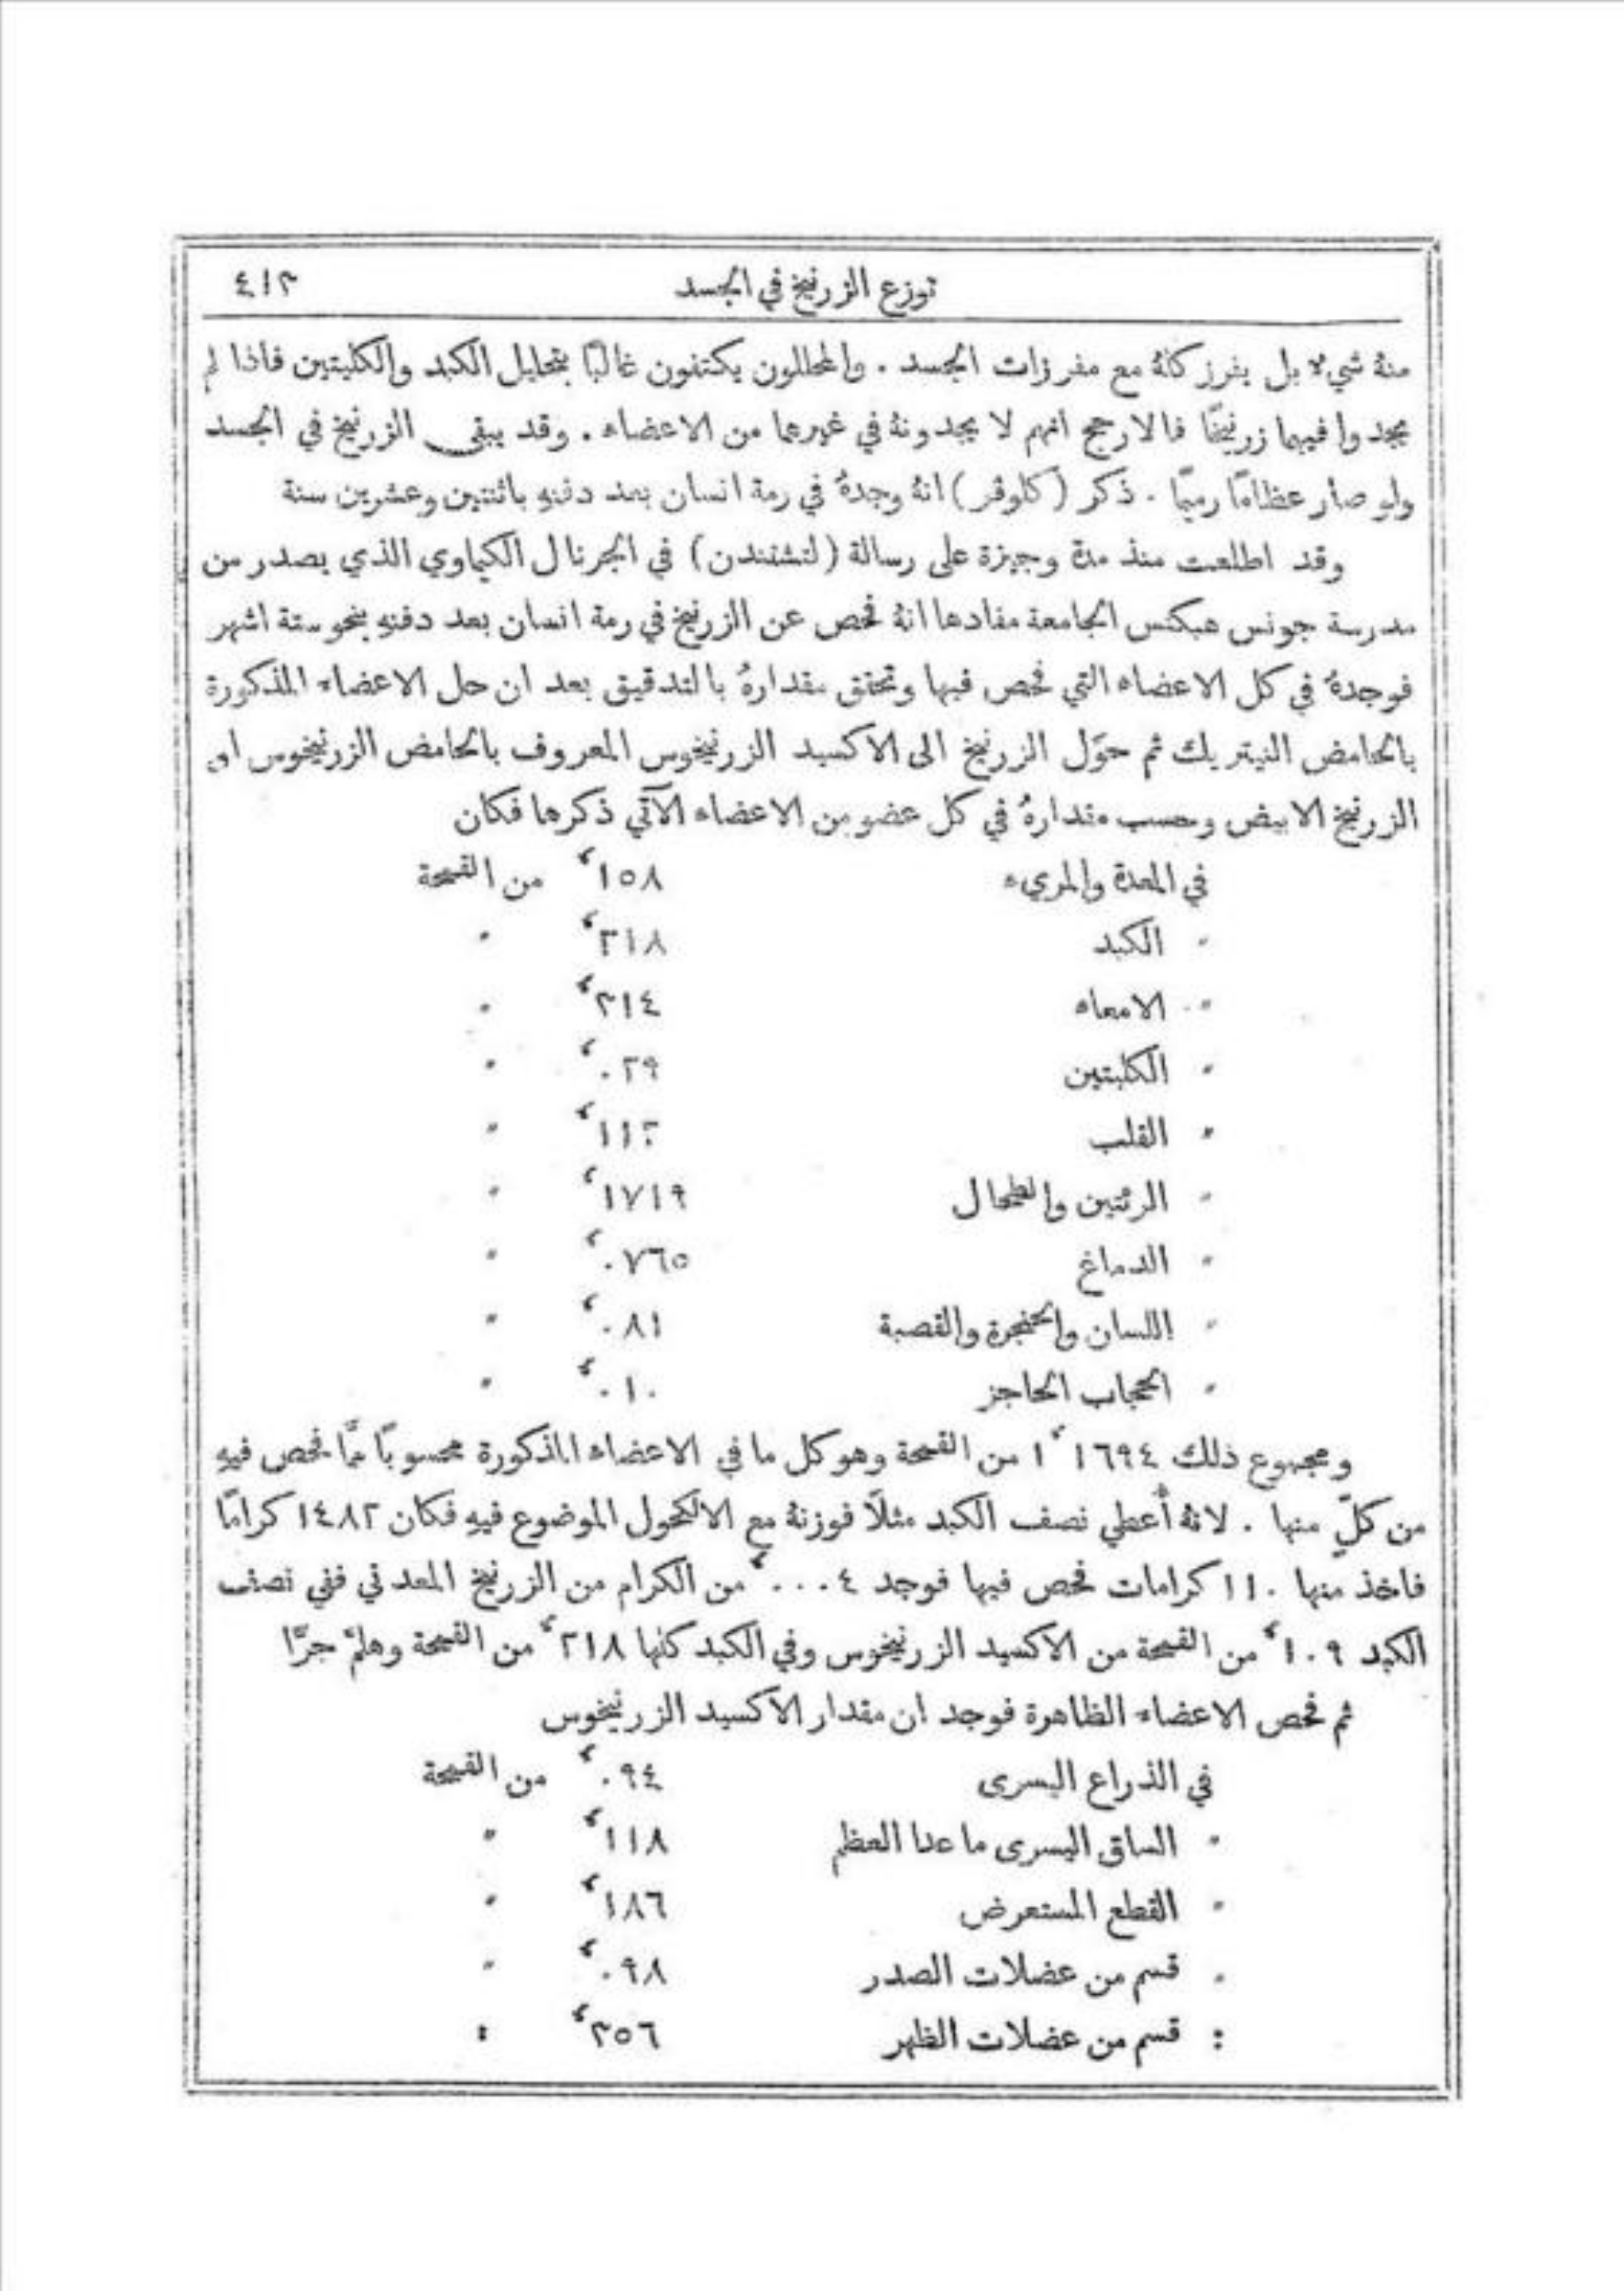 توزع الزرنيخ في الجسد ٤١٣
منهُ شيءٌ بل يفرز كلهُ مع مفرزات الجسد . والمحللون يكتفون غالبًا بتحليل الكبد والكليتين فاذا لم
يجدوا فيهما زرنيخًا فالارجح انهم لا يجدونهُ في غيرهما من الاعضاء . وقد يبقى الزرنيخ في الجسد
ولو صار عظامًا رميمًا . ذكر (كلوڤر) انهُ وجدهُ في رمة انسان بعد دفنهِ باثنتين وعشرين سنة
وقد اطلعت منذ مدة وجيزة على رسالة (لتشتندن) في الجرنال الكيماوي الذي يصدر من
مدرسة جونس هبكنس الجامعة مفادها انهُ فحص عن الزرنيخ في رمة انسان بعد دفنهِ بنحو ستة اشهر
فوجدهُ في كل الاعضاء التي فحص فيها وتحقق مقدارهُ بالتدقيق بعد ان حل الاعضاء المذكورة
بالحامض النيتريك ثم حوَّل الزرنيخ الى الاكسيد الزرنيخوس المعروف بالحامض الزرنيخوس او
الزرنيخ الابيض وحسب مقدارهُ في كل عضو من الاعضاء الآتي ذكرها فكان
في المعدة والمريء ١٥٨ʻ من القمحة
" الكبد ٢١٨ʻ "
" الامعاء ٣١٤ʻ "
" الكليتين ٠٢٩ʻ "
" القلب ١١٢ʻ "
" الرئتين والطحال ١٧١٩ʻ "
" الدماغ ٠٧٦٥ʻ "
" اللسان والحنجرة والقصبة ٠٨١ʻ "
" الحجاب الحاجز ٠١٠ʻ "
ومجموع ذلك ١٦٩٤ʻ١ من القمحة وهو كل ما في الاعضاء المذكورة محسوبًا مَّا فحص فيهِ
من كلٍّ منها . لانهُ أُعطي نصف الكبد مثلًا فوزنهُ مع الالكحول الموضوع فيهِ فكان ١٤٨٢ كرامًا
فاخذ منها ١١٠ كرامات فحص فيها فوجد ٠٠٠٤ʻ من الكرام من الزرنيخ المعدني ففي نصف
الكبد ١٠٩ʻ من القمحة من الاكسيد الزرنيخوس وفي الكبد كلها ٢١٨ʻ من القمحة وهلمَّ جرًّا
ثم فحص الاعضاء الظاهرة فوجد ان مقدار الاكسيد الزرنيخوس
في الذراع اليسرى ٠٩٤ʻ من القمحة
" الساق اليسرى ما عدا العظم ١١٨ʻ "
" القطع المستعرض ١٨٦ʻ "
" قسم من عضلات الصدر ٠٩٨ʻ "
: قسم من عضلات الظهر ٣٥٦ʻ :